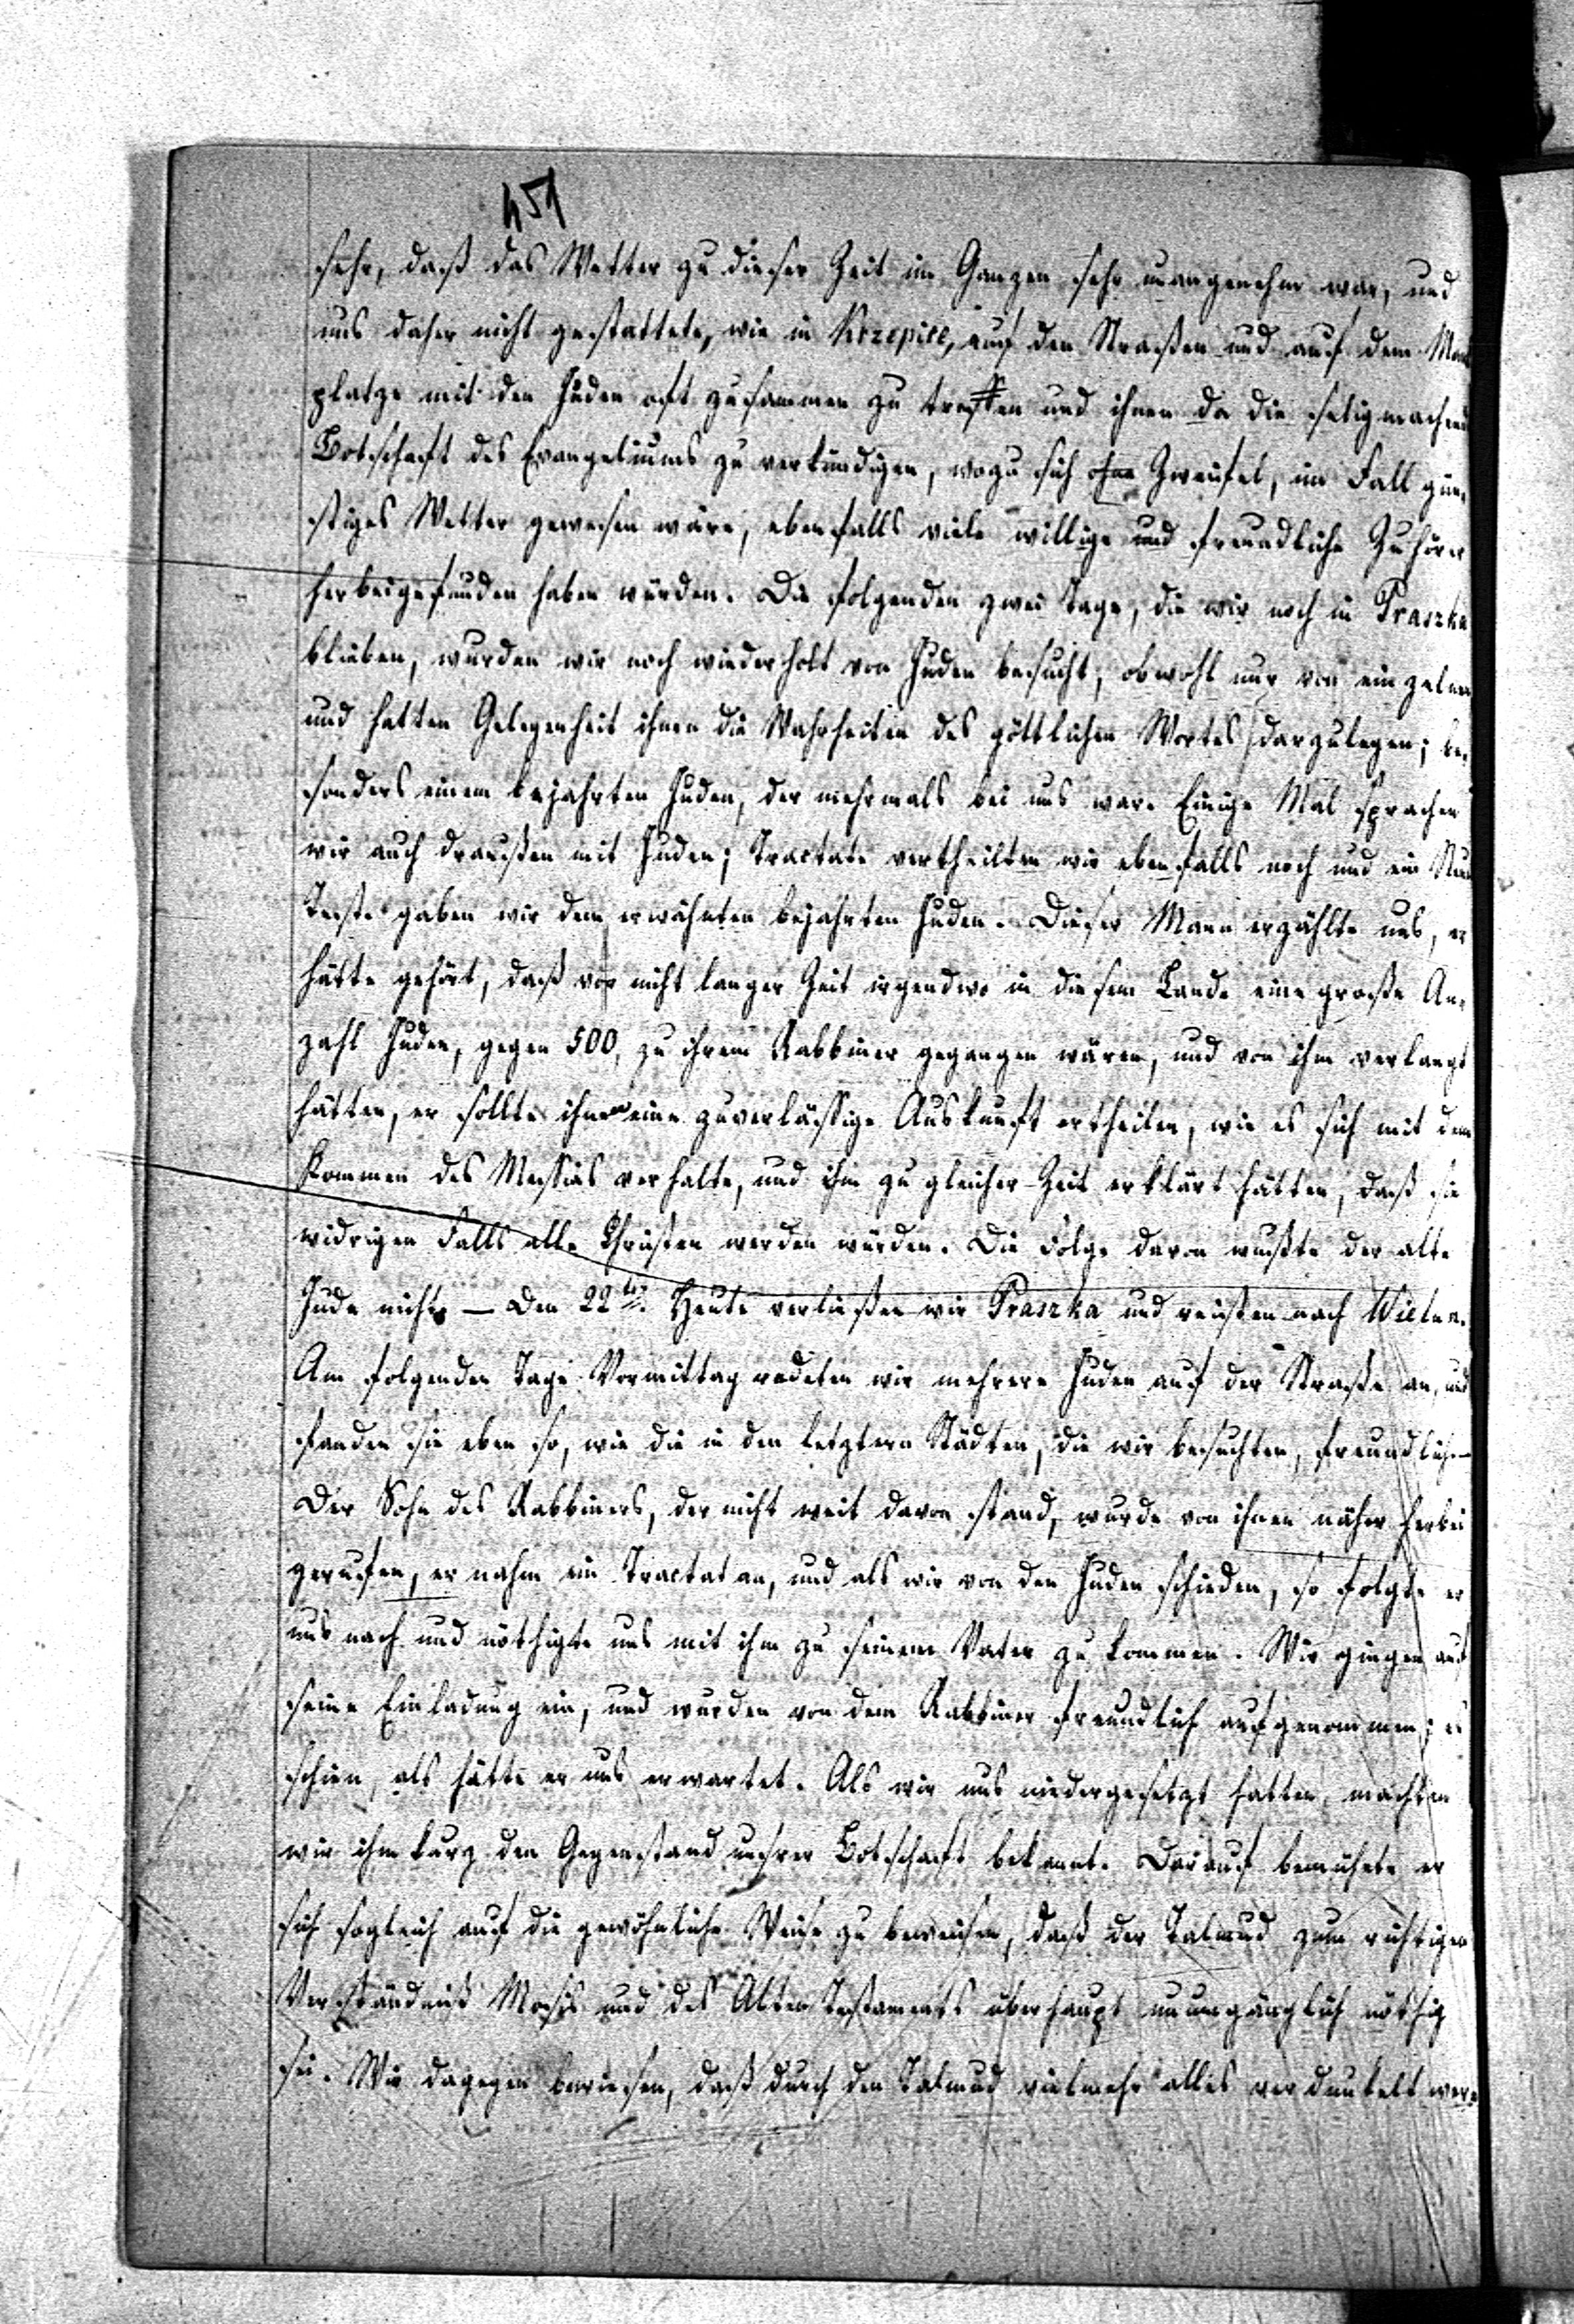 451
sehr, daß das Wetter zu dieser Zeit im Ganzen sehr unangenehm war, und
uns daher nicht gestattete, wie in Krzepice, auf den Straßen und auf dem Markt
platze mit den Juden oft zusammen zu treffen und ihnen da die seligmachende
Botschaft des Evangeliums zu verkündigen, wozu sich ohne Zweifel, im Fall gün-
stiges Wetter gewesen wäre, ebenfalls viele willige und freundliche Zuhörer
herbeigefunden haben würden. Die folgenden zwei Tage, die wir noch in Praszka
blieben, wurden wir noch wiederholt von Juden besucht, obwohl nur von einzelnen
und hatten Gelegenheit ihnen die Wahrheiten des göttlichen Wortes darzulegen; be-
sonders einem bejahrten Juden, der mehrmals bei uns war. Einige Mal sprachen
wir auch draußen mit Juden; Tractate vertheilten wir ebenfalls noch und ein Neue
Test. gaben wir dem erwähnten bejahrten Juden. Dieser Mann erzählte uns, er
hätte gehört, daß vor nicht langer Zeit irgendwo in diesem Lande eine große An-
zahl Juden, gegen 500, zu ihrem Rabbiner gegangen wären, und von ihm verlangt
hätten, er sollte ihnen eine zuverlässige Auskunft ertheilen, wie es sich mit dem
Kommen des Messias verhalte, und ihm zu gleicher Zeit erklärt hätten, daß sie
widrigen Falls alle Christen werden würden. Die Folge davon wußte der alte
Jude nicht. — Den 22ten. Heute verließen wir Praszka und reisten nach Wielun.
Am folgenden Tage Vormittag redeten wir mehrere Juden auf der Straße an, und
fanden sie eben so, wie die in den letztern Städten, die wir besuchten, freundlich.
Der Sohn des Rabbiners, der nicht weit davon stand, wurde von ihnen näher herbei
gerufen, er nahm ein Tractat an, und als wir von den Juden schieden, so folgte er
uns nach und nöthigte uns mit ihm zu seinem Vater zu kommen. Wir gingen auf
seine Einladung ein, und wurden von dem Rabbiner freundlich aufgenommen; es
schien, als hätte er uns erwartet. Als wir uns niedergesetzt hatten, machten
wir ihm kurz den Gegenstand unsrer Botschaft bekannt. Darauf bemühete er
sich sogleich auf die gewöhnliche Weise zu beweisen, daß der Talmud zum richtigen
Verständniß Mosis und des Alten Testaments überhaupt unumgänglich nöthig
sei. Wir dagegen bewiesen, daß durch den Talmud vielmehr alles verdunkelt wer-